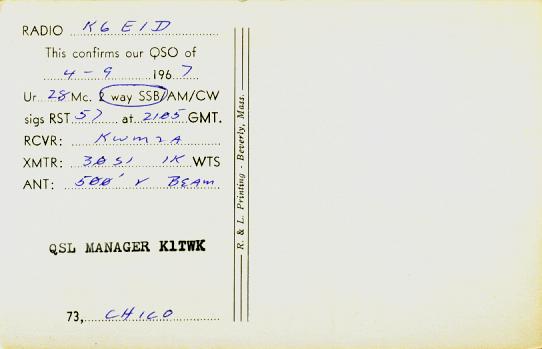 RADIO K6EID
This confirms our QSO of
4-9 1967
Ur 28 Mc. 2 way SSB/AM/CW
sigs RST 57 at 2105 GMT.
RCVR: KWM2A
XMTR: 30S1 1K WTS
ANT: 500' V BEAM
QSL MANAGER K1TWK
73, CHICO
R. & L. Printing - Beverly, Mass.